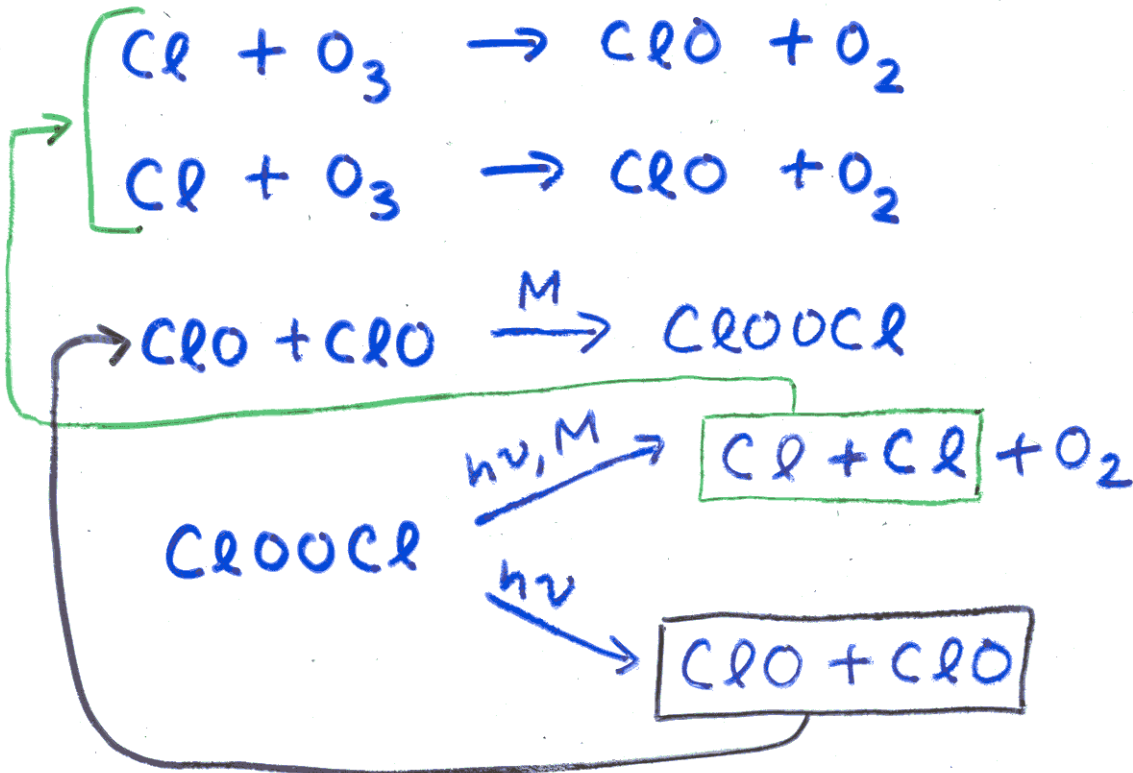 Cl + O₃ → ClO + O₂
Cl + O₃ → ClO + O₂
M
ClO + ClO → ClOOCl
hν, M
Cl + Cl + O₂
ClOOCl
hν
ClO + ClO